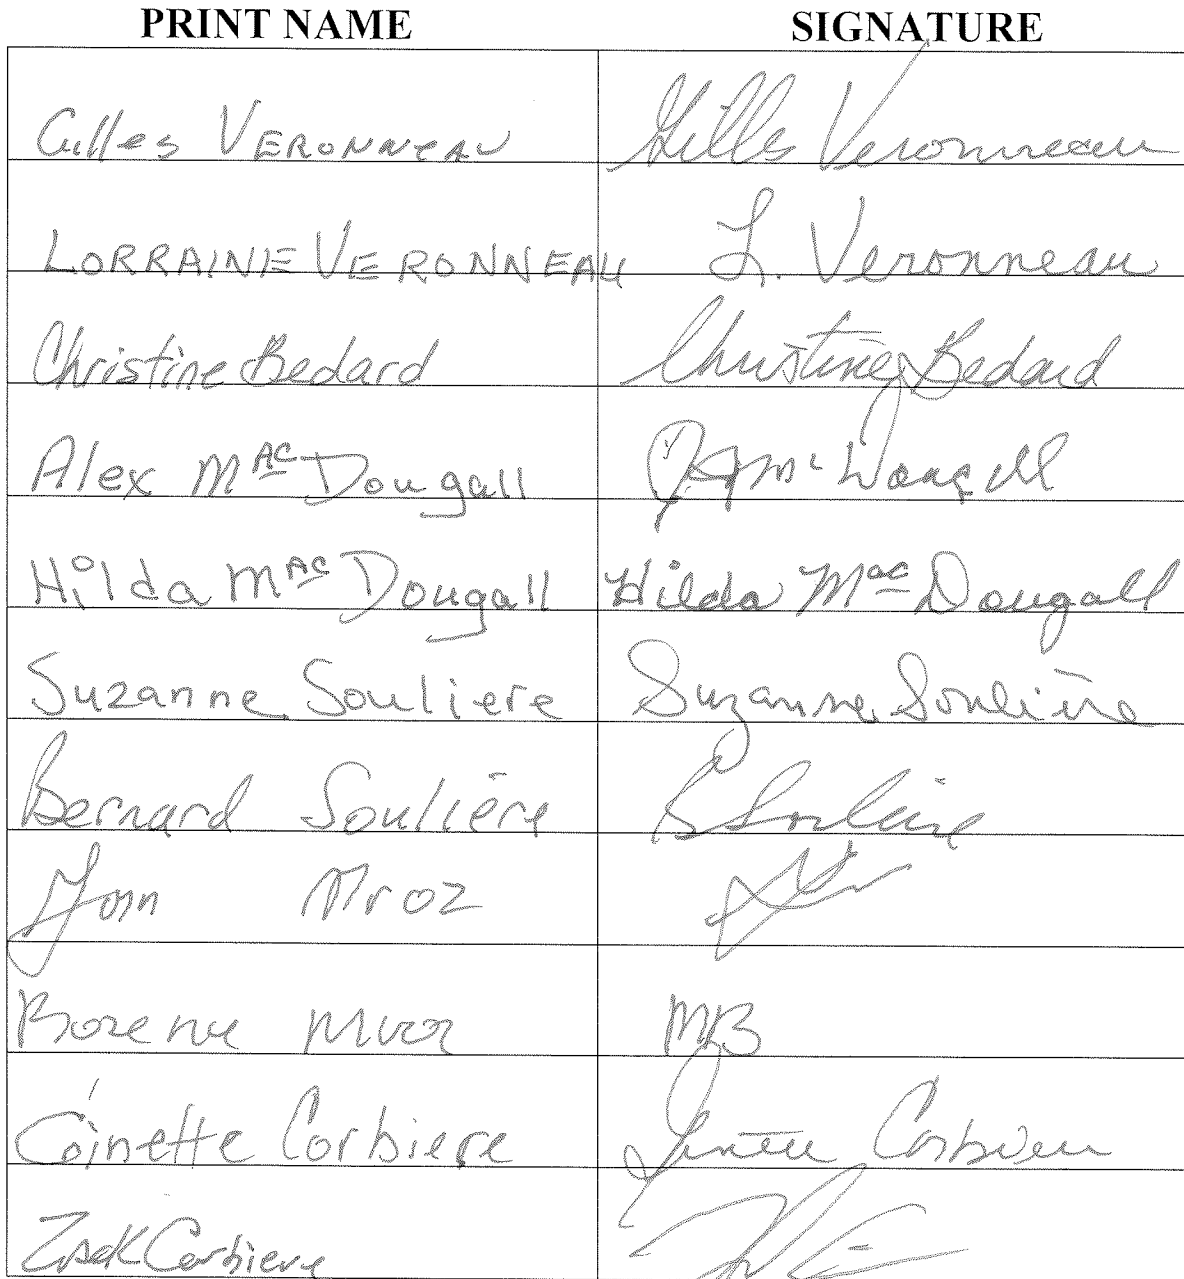 PRINT NAME SIGNATURE
Gilles VERONNEAU Gilles Veronneau
LORRAINE VERONNEAU L. Veronneau
Christine Bedard Christine Bedard
Alex Mac Dougall
Hilda Mac Dougall Hilda Mac Dougall
Suzanne Souliere Suzanne Soulière
Bernard Soulière B Soulière
Mroz
MB
Corbiere Corbiere
Zack Corbiere